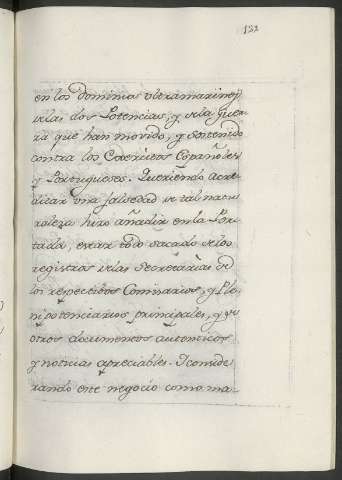 132
en los Dominios Ultramarinos
de las dos Potencias, y de la Guer-
ra que han movido, y sostenido
contra los Exercitos Españoles
y Portugueses. Queriendo acre-
ditar una falsedad de tal natu-
raleza hizo añadir en la Por-
tada, estar todo sacado de los
registros de las Secretarías de
los respectibos Comisarios, y Ple-
nipotenciarios principales, y de
otros documentos autenticos
y noticias apreciables. Y conside-
rando este negocio como ma-